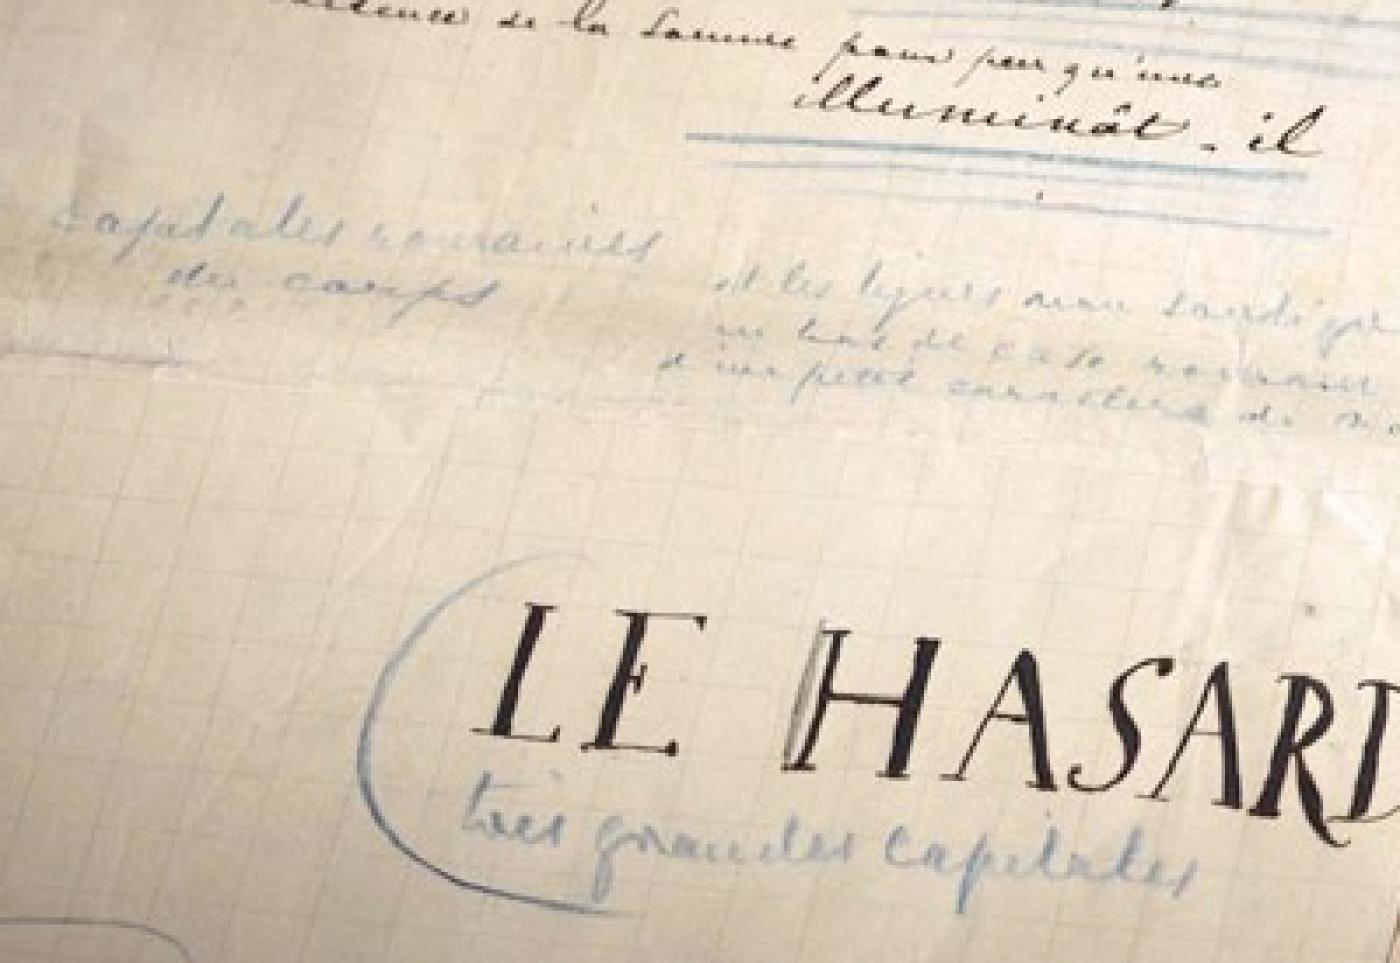 de la somme pour peu qu'une
illuminât - il
capitales romaines
du corps
et les lignes non soulignées
en bas de casse romain
d'un petit caractère de
LE HASARD
très grandes capitales